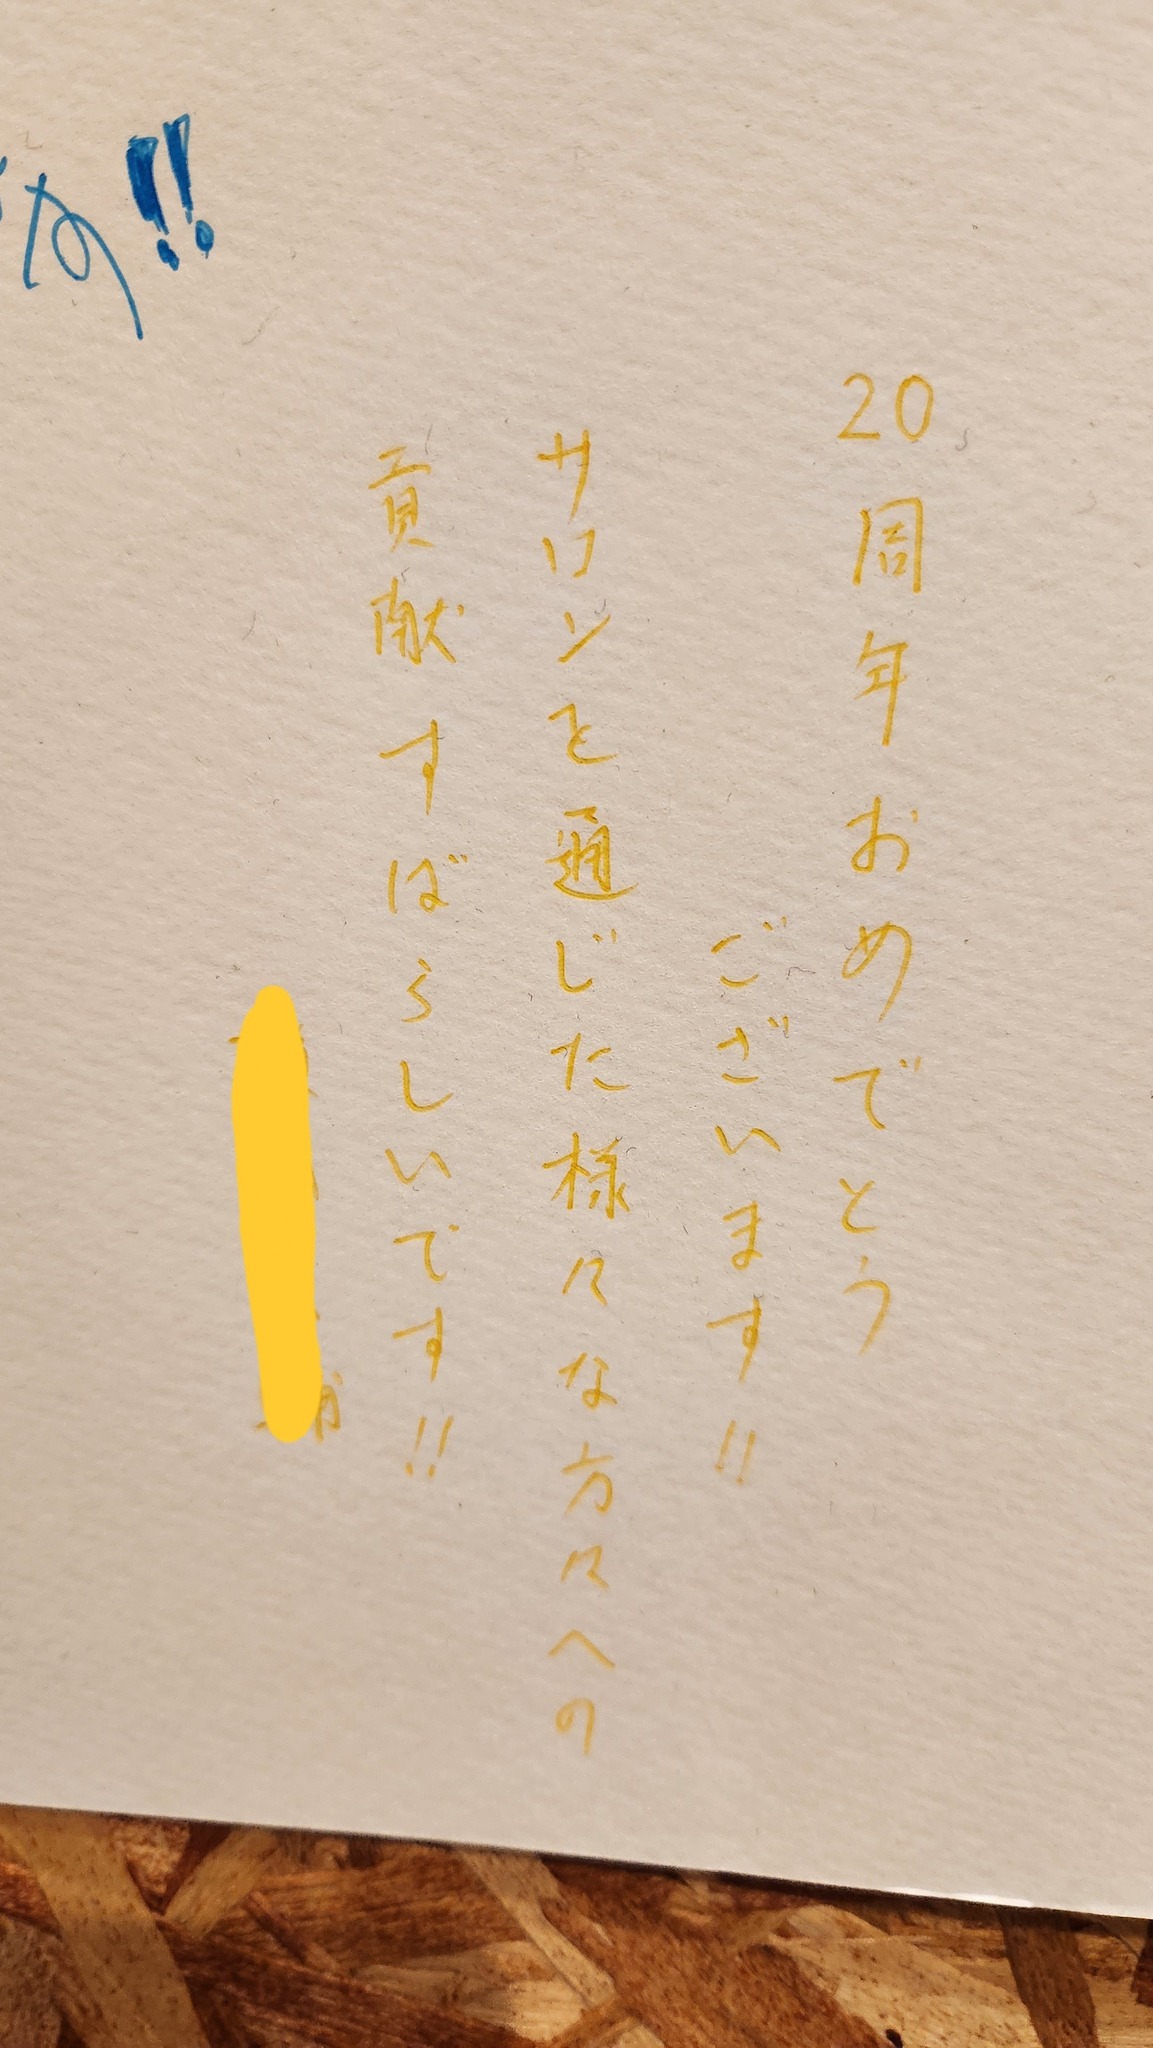 20周年おめでとう
ございます!!
サロンを通じた様々な方々への
貢献すばらしいです!!
!!